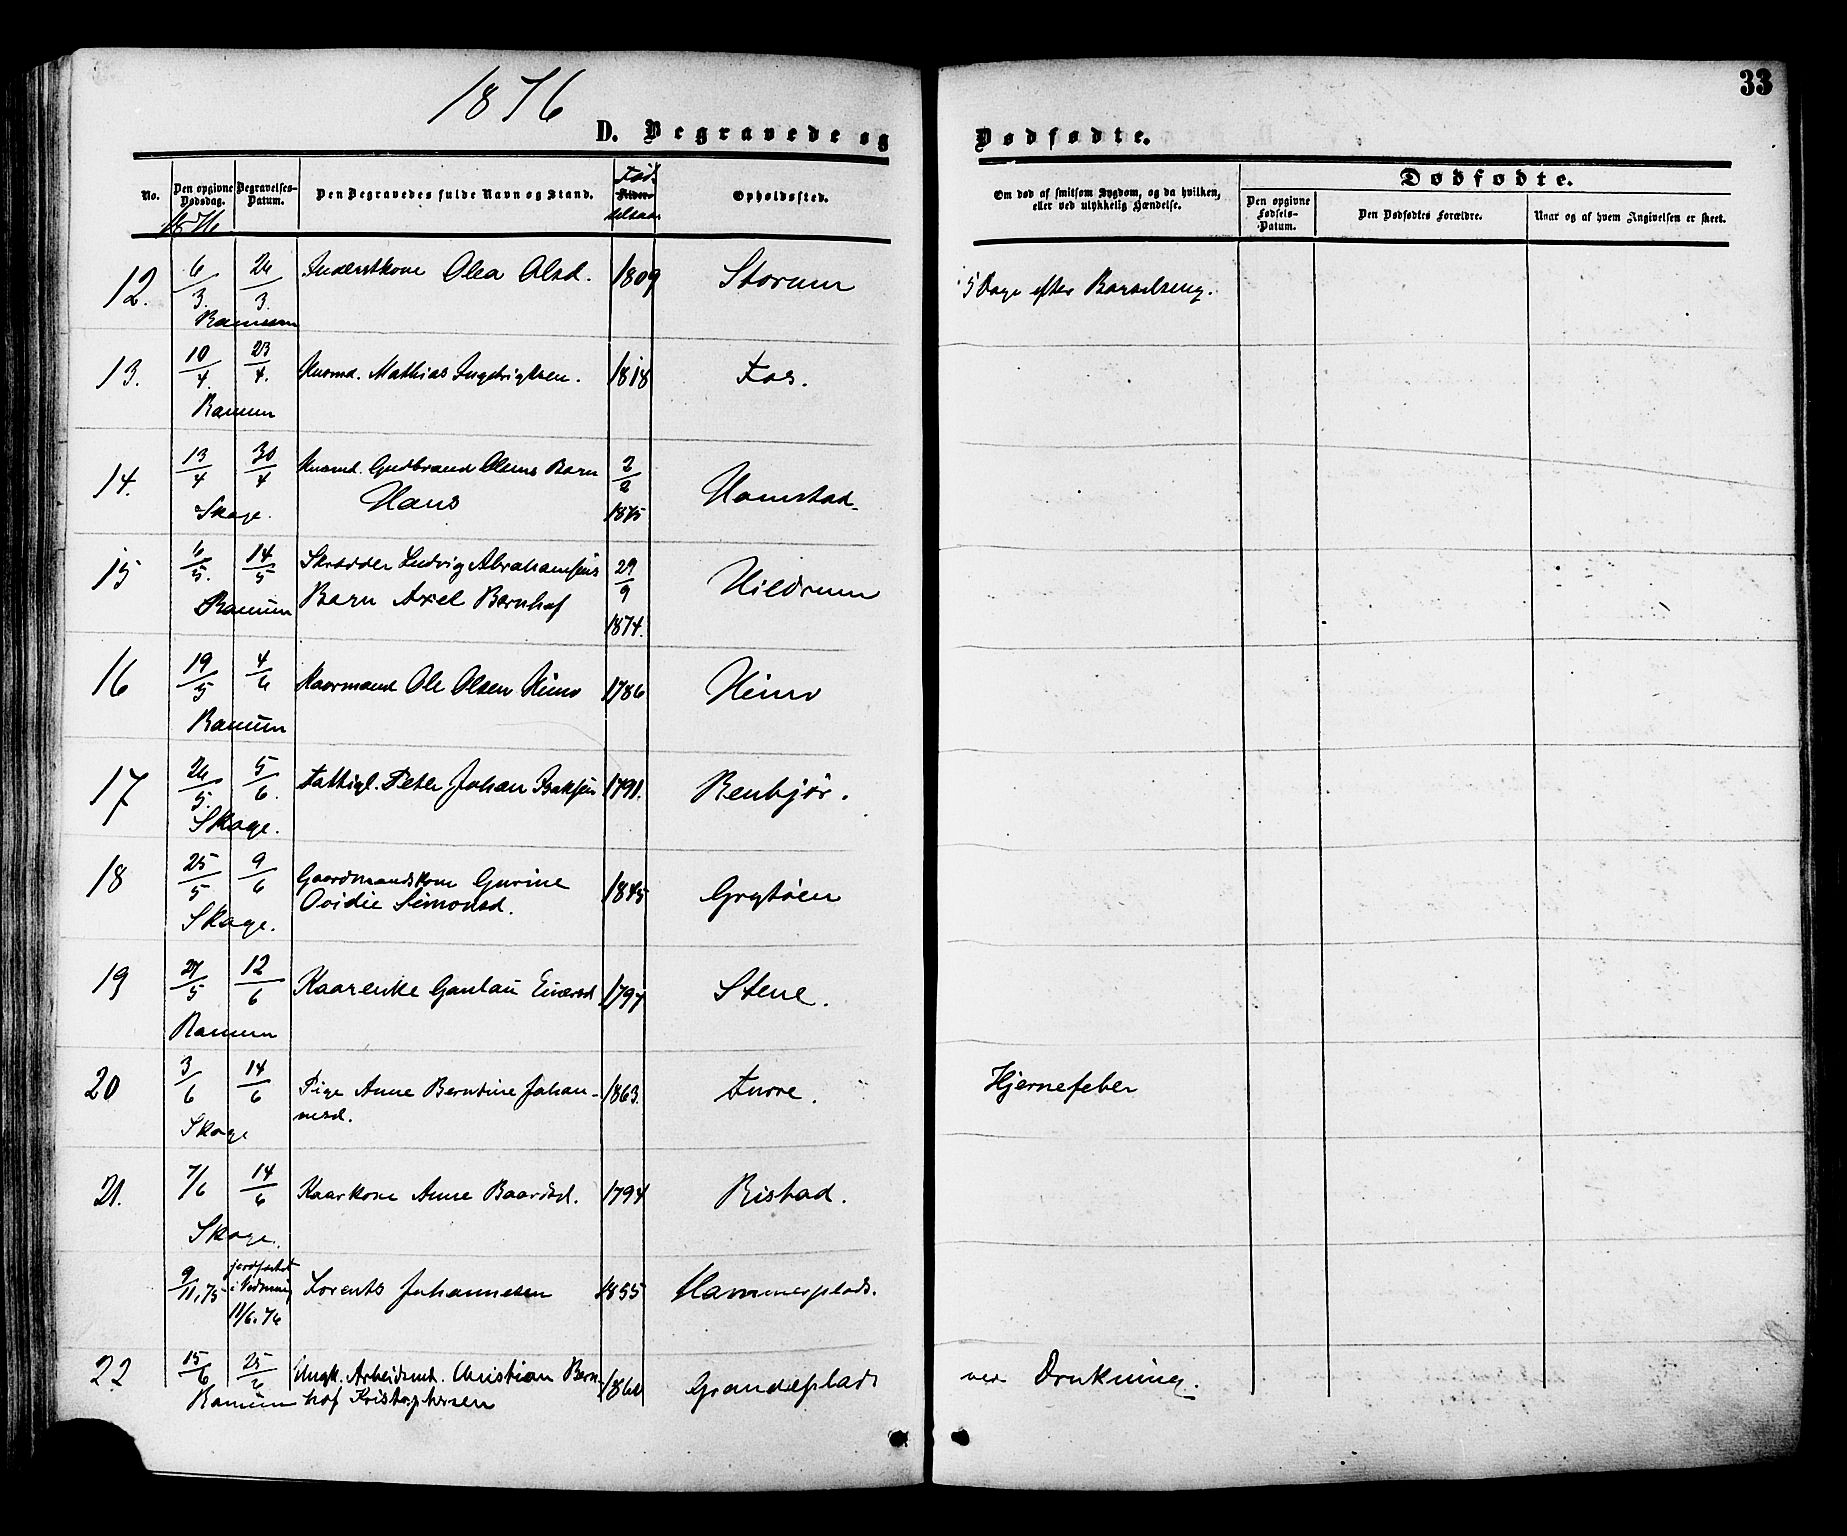 1876
33
D. Begravede og Dødfødte.
No.
Den opgivne Dødsdag.
1876
Begravelses-Datum.
Den Begravedes fulde Navn og Stand.
Fød-
selsaar
Opholdssted.
Om død af smitsom Sygdom, og da hvilken,
eller ved ulykkelig Hændelse.
Dødfødte.
Den opgivne Fødsels-Datum.
Den Dødfødtes Forældre.
Naar og af hvem Angivelsen er skeet.
12. 6/3 26/3 Inderstkone Olea Olsd. 1809 Storum 5 Dage efter Barselseng.
Ranum
13. 10/4 23/4 Husmd. Mathias Ingebrigtsen. 1818 Fos.
Ranum
14. 13/4 30/4 Husmd. Gudbrand Olsens Barn 2/2
Skage. Hans 1875 Hamstad
15 6/5 14/5 Skrædder Ludvig Abrahamsens 29/9
Ranum Barn Axel Bernhof 1874. Hildrum
16 19/5 4/6 Kaarmand Ole Olsen Himo 1786 Himo
Ranum
17 26/5 5/6 Fattigl. Peter Johan Isaksen 1791. Renbjør.
Skage.
18 25/5 9/6 Gaardmandskone Gurine 1845 Grytøen
Skage. Ovidie Simonsd.
19 27/5 12/6 Kaarenke Gunlau Einersd 1797 Stene.
Ranum
20 3/6 14/6 Pige Anne Berntine Johan- 1863. Furre. Hjernefeber
Skage nesd.
21. 7/6 14/6 Kaarkone Anne Baardsd. 1794 Ristad.
Skage.
9/11,75 jordfæstet
i Vedning
11/6.76 Lorents Johannesen 1855 Hammerplads.
22 15/6 25/6 Ungk. Arbeidsmd. Christian Bern- 1860 Grandeplads ved Drukning.
Ranum hof Kristophersen